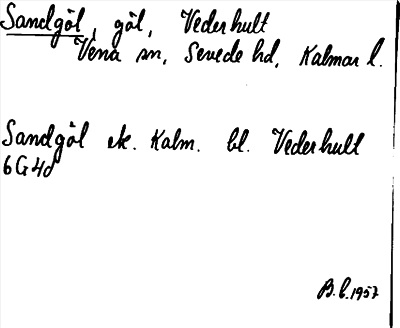 Sandgöl, göl, Vederhult
Vena sn, Sevede hd, Kalmar l.
Sandgöl ek. Kalm. bl. Vederhult
6G4d
B.l.1957